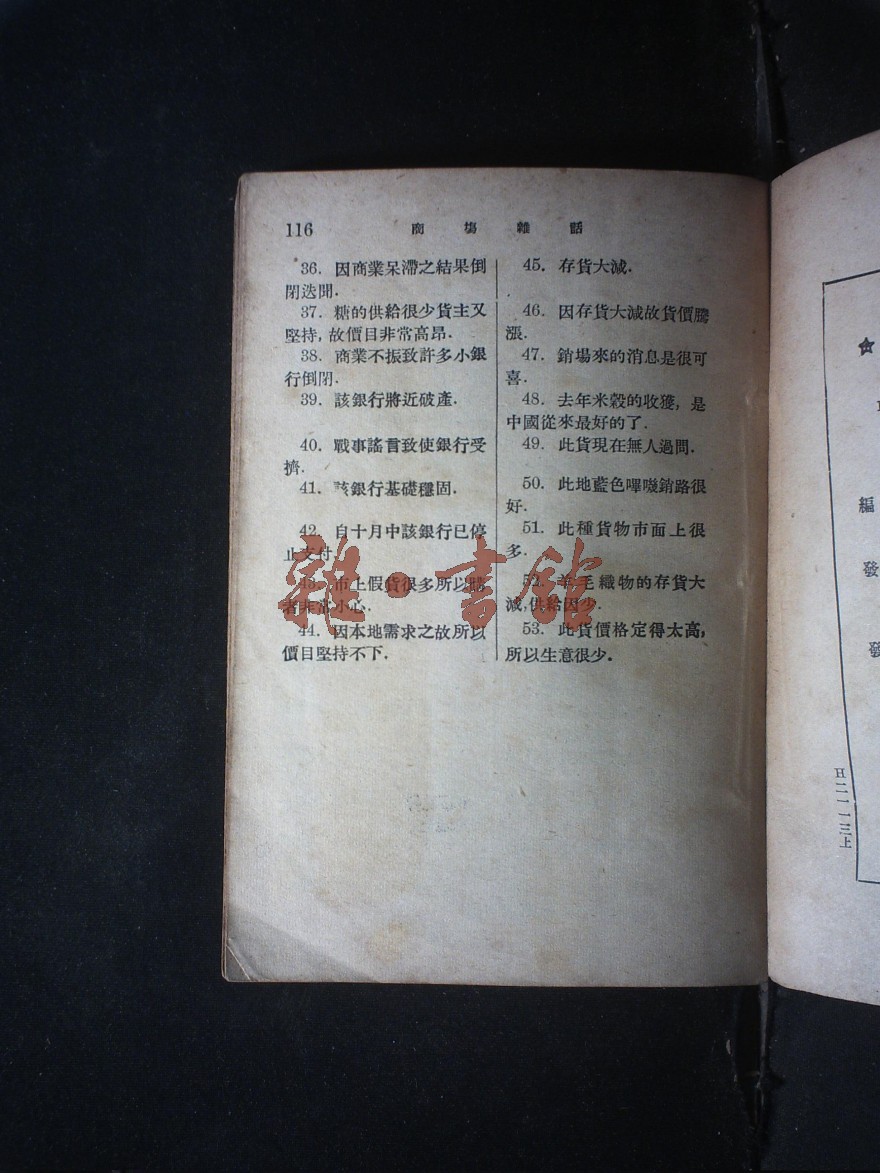 116 商場雜話
36. 因商業呆滯之結果倒
閉迭聞.
37. 糖的供給很少貨主又
堅持, 故價目非常高昂.
38. 商業不振致許多小銀
行倒閉.
39. 該銀行將近破產.
40. 戰事謠言致使銀行受
擠.
41. 該銀行基礎穩固.
42. 自十月中該銀行已停
止支付.
43. 市上假貨很多所以購
者非常小心.
44. 因本地需求之故所以
價目堅持不下.
45. 存貨大減.
46. 因存貨大減故貨價騰
漲.
47. 銷場來的消息是很可
喜.
48. 去年米穀的收獲, 是
中國從來最好的了.
49. 此貨現在無人過問.
50. 此地藍色嗶嘰銷路很
好.
51. 此種貨物市面上很
多.
52. 羊毛織物的存貨大
減, 供給因少.
53. 此貨價格定得太高,
所以生意很少.
雜·書館
編
發
發
H二一一三上